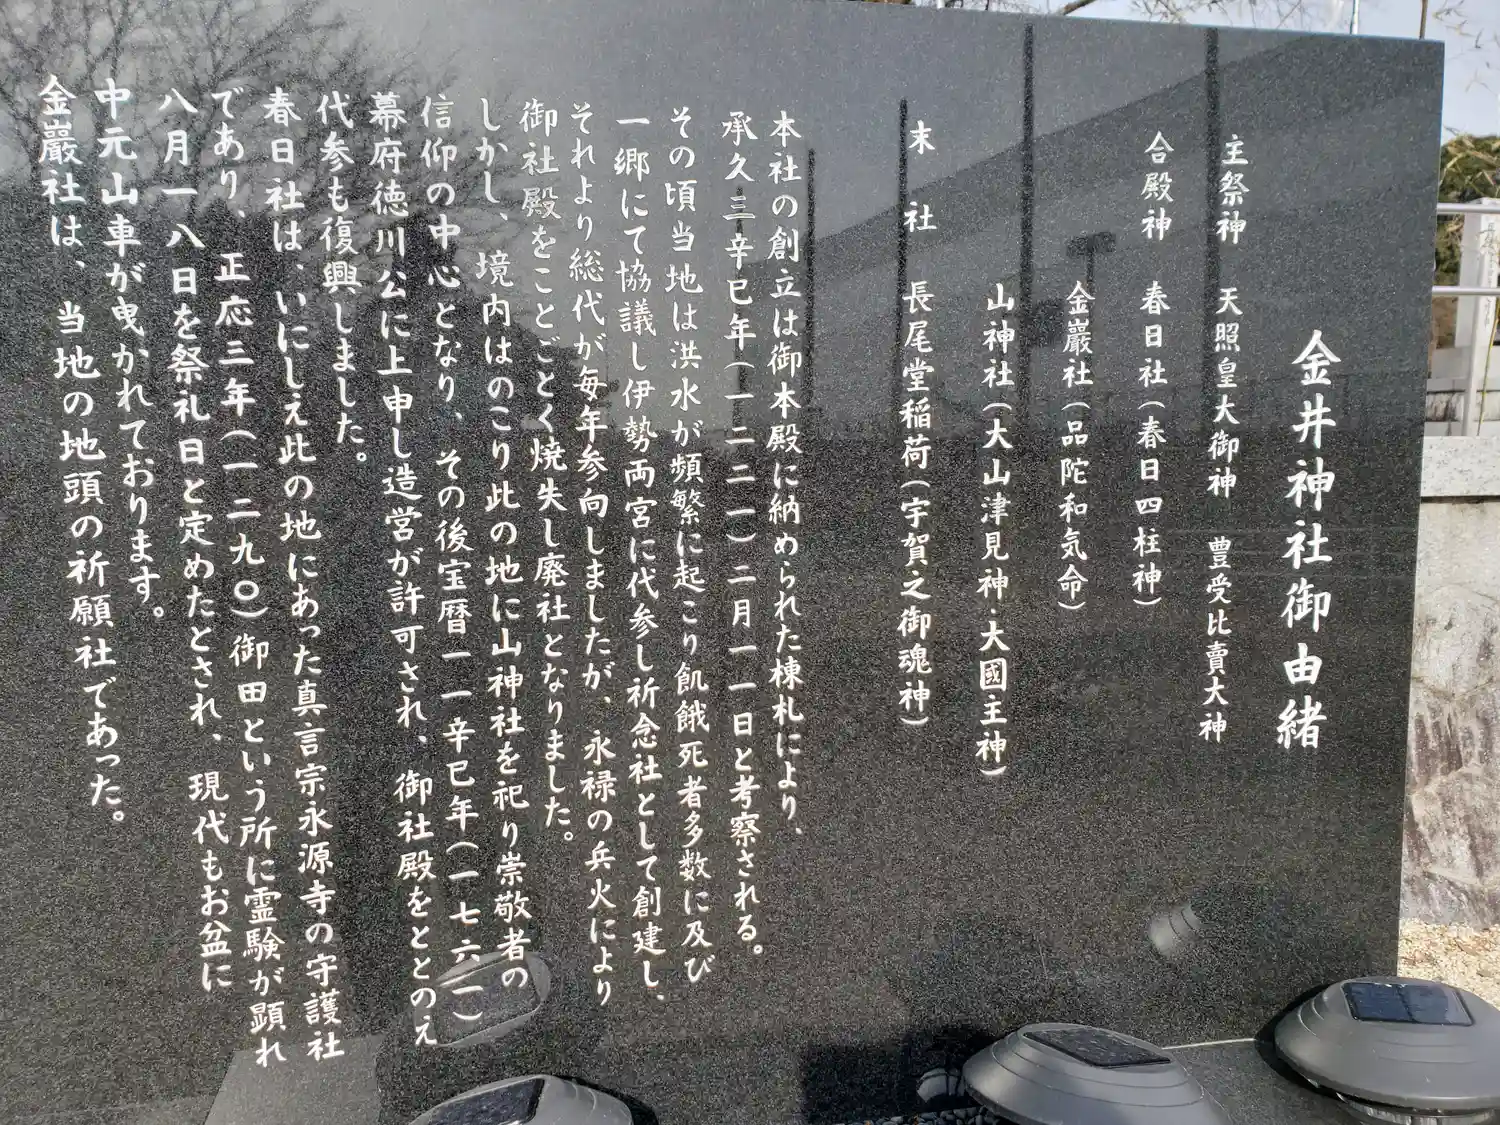 金井神社御由緒
主祭神　天照皇大御神　豊受比賣大神
合殿神　春日社（春日四柱神）
金巖社（品陀和気命）
山神社（大山津見神・大國主神）
末　社　長尾堂稲荷（宇賀之御魂神）
本社の創立は御本殿に納められた棟札により、
承久三辛巳年（一二二一）二月一一日と考察される。
その頃当地は洪水が頻繁に起こり飢餓死者多数に及び
一郷にて協議し伊勢両宮に代参し祈念社として創建し、
それより総代が毎年参向しましたが、永禄の兵火により
御社殿をことごとく焼失し廃社となりました。
しかし、境内はのこり此の地に山神社を祀り崇敬者の
信仰の中心となり、その後宝暦一一辛巳年（一七六一）
幕府徳川公に上申し造営が許可され、御社殿をととのえ
代参も復興しました。
春日社は、いにしえ此の地にあった真言宗永源寺の守護社
であり、正応三年（一二九〇）御田という所に霊験が顕れ
八月一八日を祭礼日と定めたとされ、現代もお盆に
中元山車が曳かれております。
金巖社は、当地の地頭の祈願社であった。